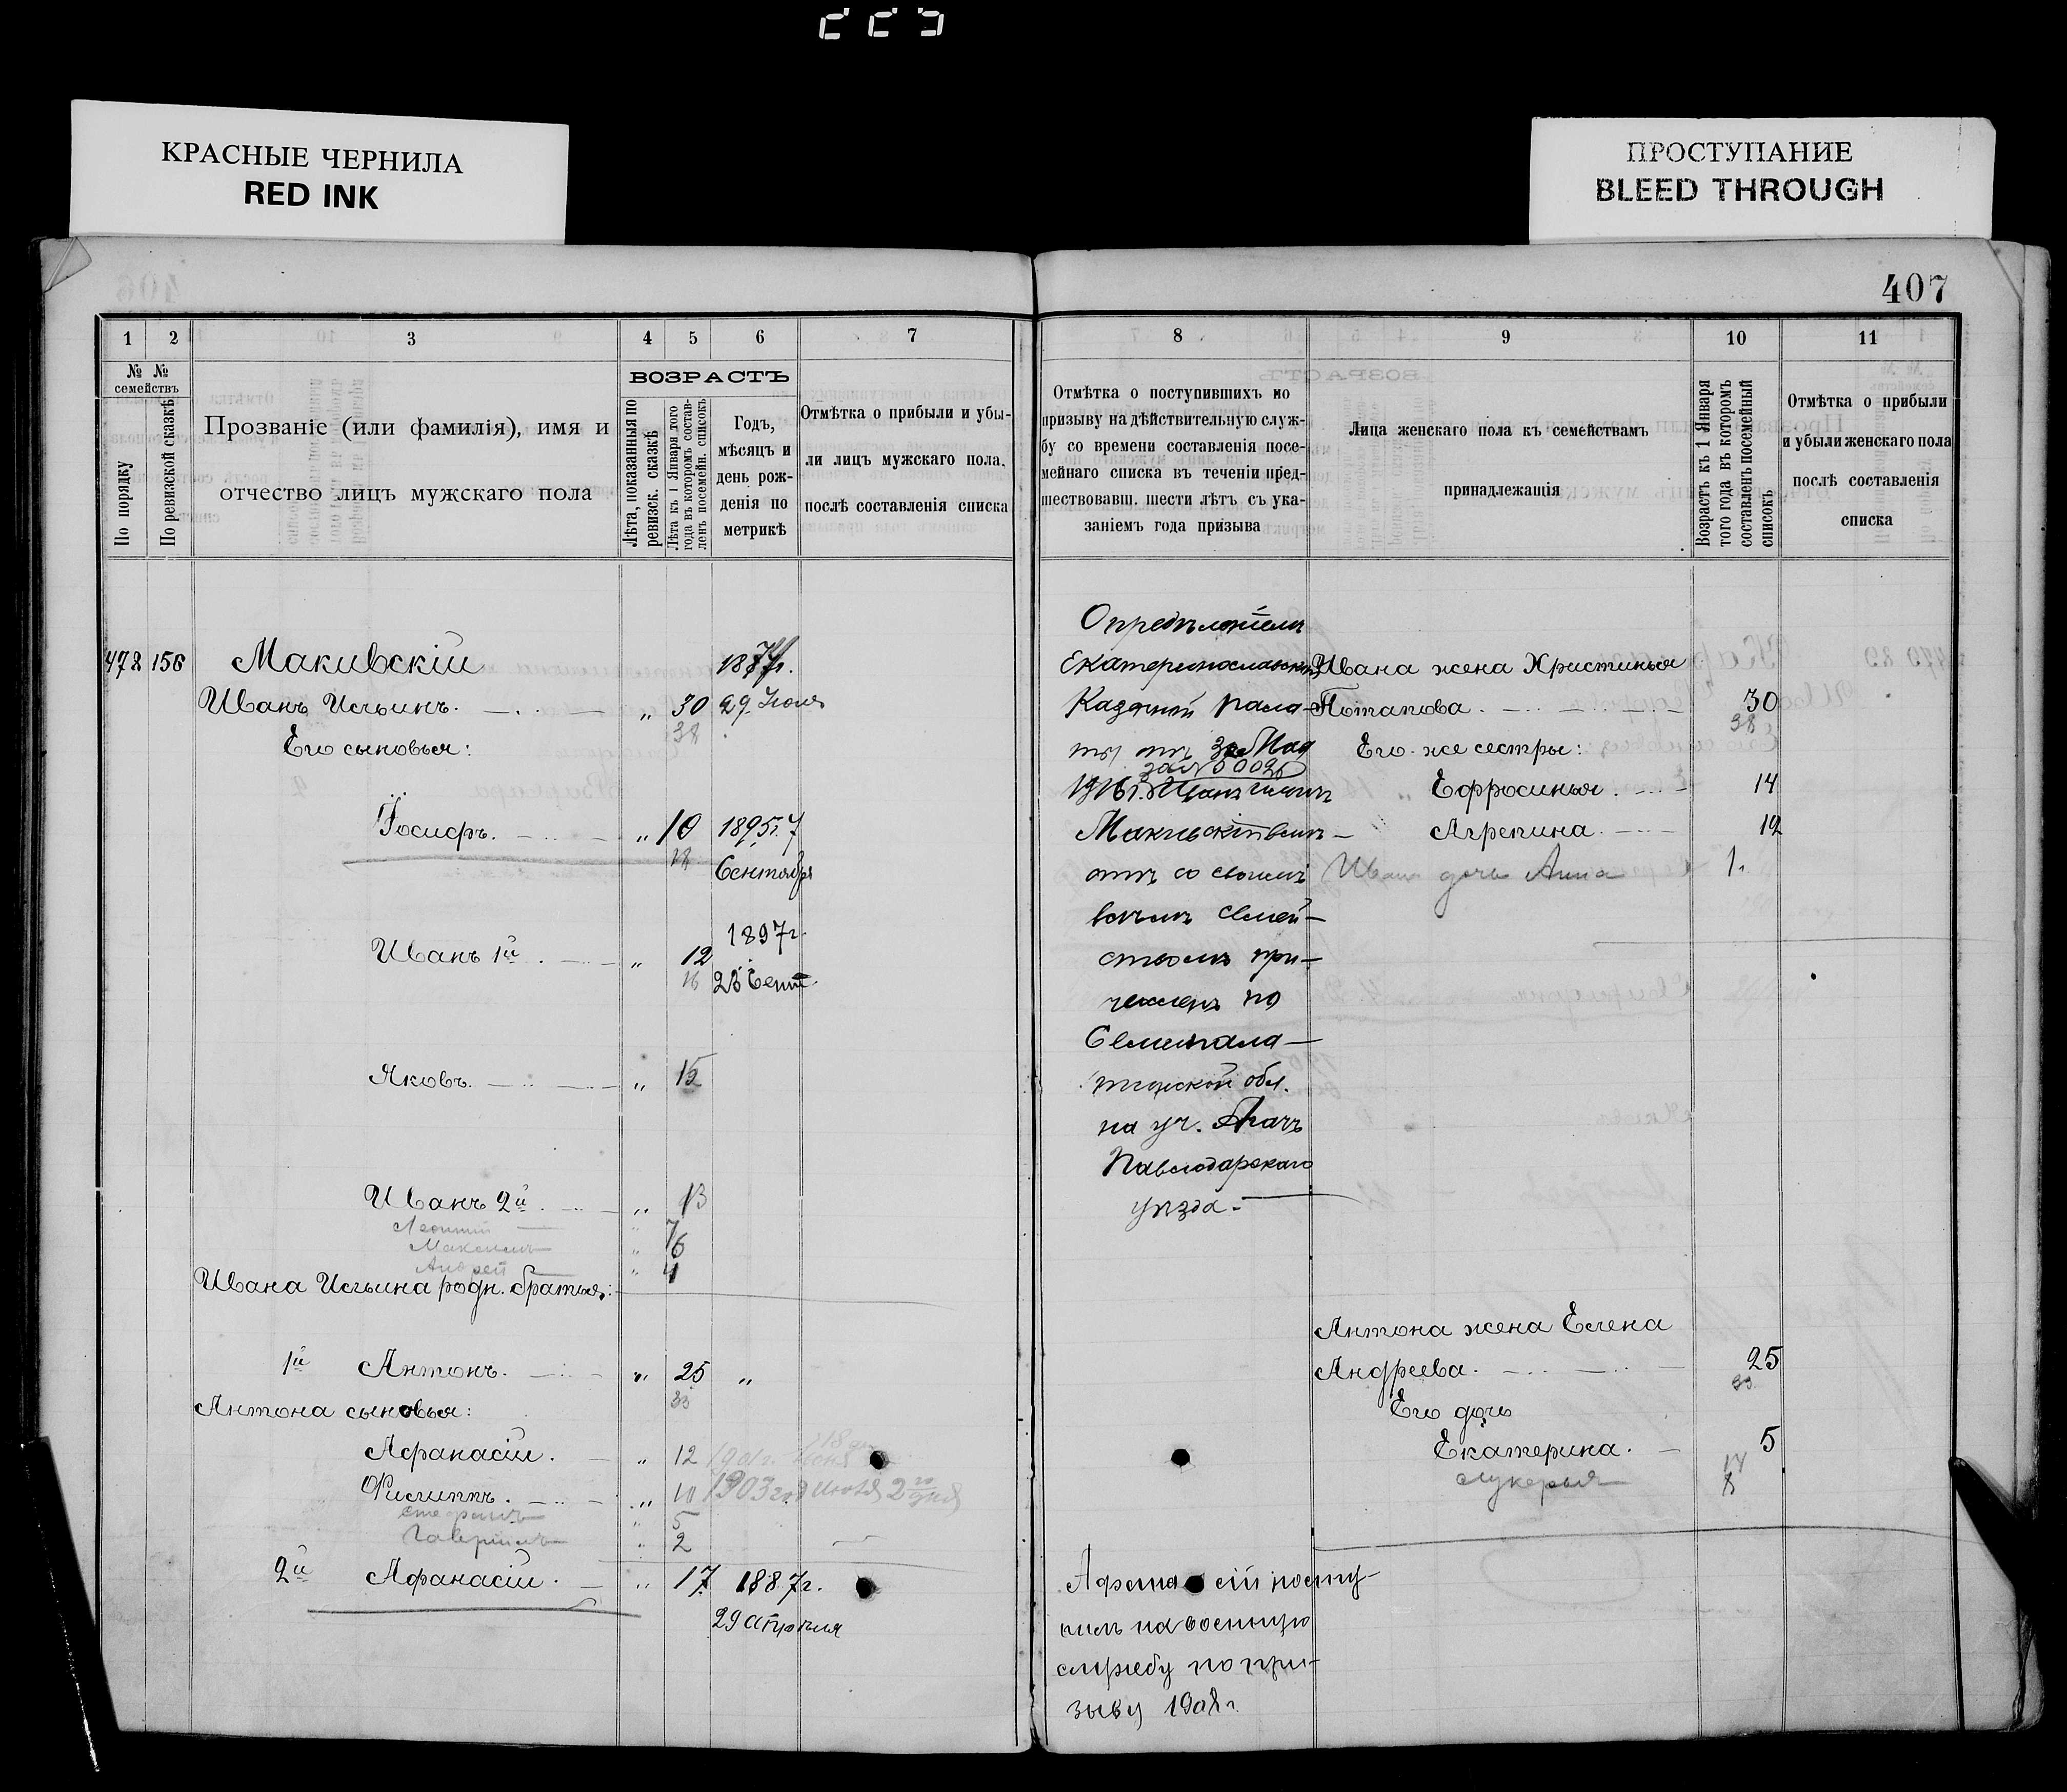 КРАСНЫЕ ЧЕРНИЛА
RED INK
ПРОСТУПАНИЕ
BLEED THROUGH
407
1 2 3 4 5 6 7
№ № семействъ
По порядку
По ревизской сказкѣ
Прозваніе (или фамилія), имя и
отчество лицъ мужскаго пола
ВОЗРАСТЪ
Лѣта, показанныя по
ревизск. сказкѣ
Лѣта къ 1 Января того
года въ которомъ состав-
ленъ посемейн. списокъ
Годъ,
мѣсяцъ и
день рож-
денія по
метрикѣ
Отмѣтка о прибыли и убы-
ли лицъ мужскаго пола,
послѣ составленія списка
472 156 Макивскій
Иванъ Ильинъ. „ 30 29 Іюля
38
Его сыновья:
Іосифъ. „ 10 1895г. 7
18 Сентября
1897г.
Иванъ 1й. „ 12
16 23 Сент.
Яковъ. „ 15
Иванъ 2й. „ 13
Леонтій „ 7
Максимъ „ 6
Андрей „ 4
Ивана Ильина родн. братья:
1й Антонъ. „ 25 „
33
Антона сыновья:
Афанасій. „ 12
Филиппъ. „ 10 1903 год Июля 2го дня
Стефанъ „ 5
Гавріилъ „ 2
2й Афанасій. „ 17 1887г.
29 Апрѣля
8 9 10 11
Отмѣтка о поступившихъ по
призыву на дѣйствительную служ-
бу со времени составленія посе-
мейнаго списка въ теченіи пред-
шествовавш. шести лѣтъ съ ука-
заніемъ года призыва
Лица женскаго пола къ семействамъ
принадлежащія
Возрастъ къ 1 Января
того года въ которомъ
составленъ посемейный
списокъ
Отмѣтка о прибыли
и убыли женскаго пола
послѣ составленія
списка
Опредѣленіемъ
Екатеринославской
Казенной Пала-
ты отъ 30 Мая
1916 г. за № 5009
Иванъ Ильинъ
Макивскій вмѣ-
стѣ со своимъ
всѣмъ семей-
ствомъ при-
численъ по
Семипала-
тинской обл.
на уч.
Павлодарскаго
уѣзда.
Афанасій посту-
пилъ на военную
службу по при-
зыву 1908 г.
Ивана жена Христинья
Потапова. 30
38
Его-же сестры:
Ефросинья. 14
Агрепина. 12
Ивана дочь Анна 1.
Антона жена Елена
Андреева. 25
33.
Его дочь
Екатерина. 5
Лукерья 8